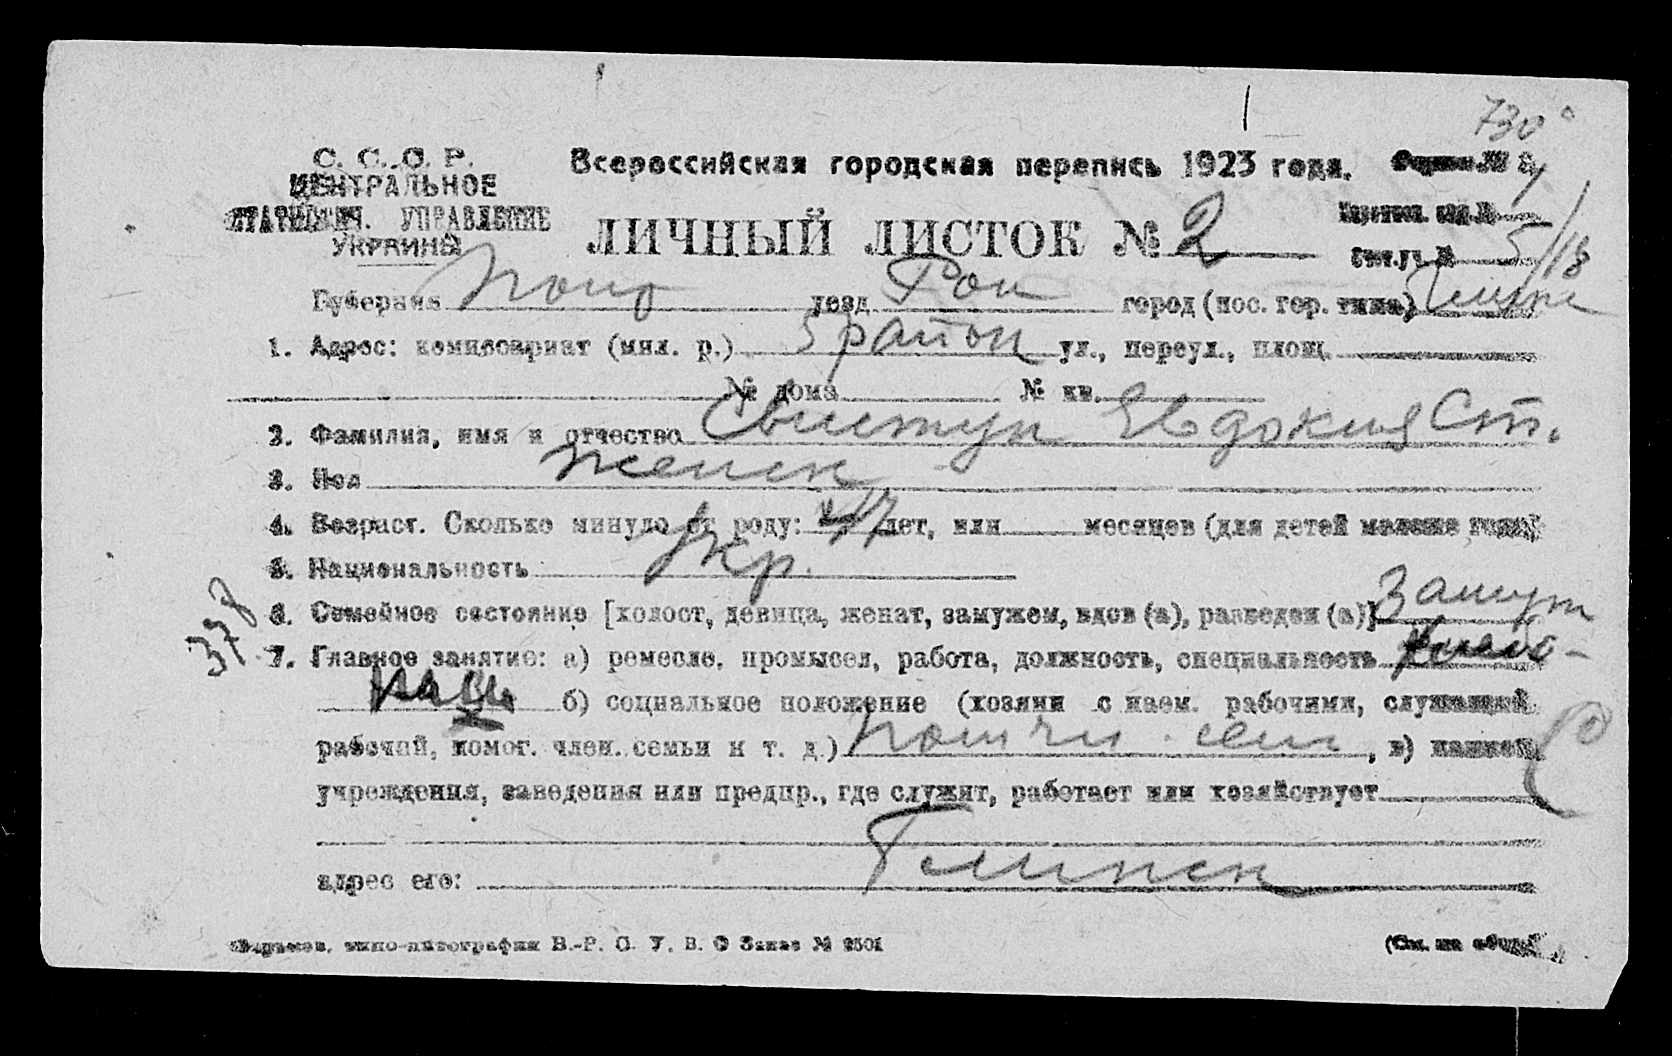 730
С. С. С. Р.
ЦЕНТРАЛЬНОЕ
СТАТИСТИЧ. УПРАВЛЕНИЕ
УКРАИНЫ
Всероссийская городская перепись 1923 года.
ЛИЧНЫЙ ЛИСТОК № 2
5/18
Губерния уезд Ром город (пос. гор. типа)
1. Адрес: комиссариат (мил. р.) 5 район ул., переул., площ.
№ дома № кв.
2. Фамилия, имя и отчество Свистун Евдокия Ст.
3. Пол женск
4. Возраст. Сколько минуло от роду: 47 лет, или месяцев (для детей моложе года)
5. Национальность Укр.
6. Семейное состояние [холост, девица, женат, замужем, вдов (а), разведен (а)] Замуж
378
7. Главное занятие: а) ремесло, промысел, работа, должность, специальность хлебо-
паш б) социальное положение (хозяин с наем. рабочими, служащий
рабочий, помог. член. семьи и т. д.) , в) название
учреждения, заведения или предпр., где служит, работает или хозяйствует
адрес его: Глинск
типо-литография В.-Р. О. У. В. О Заказ № 2501
(См. на обор.)